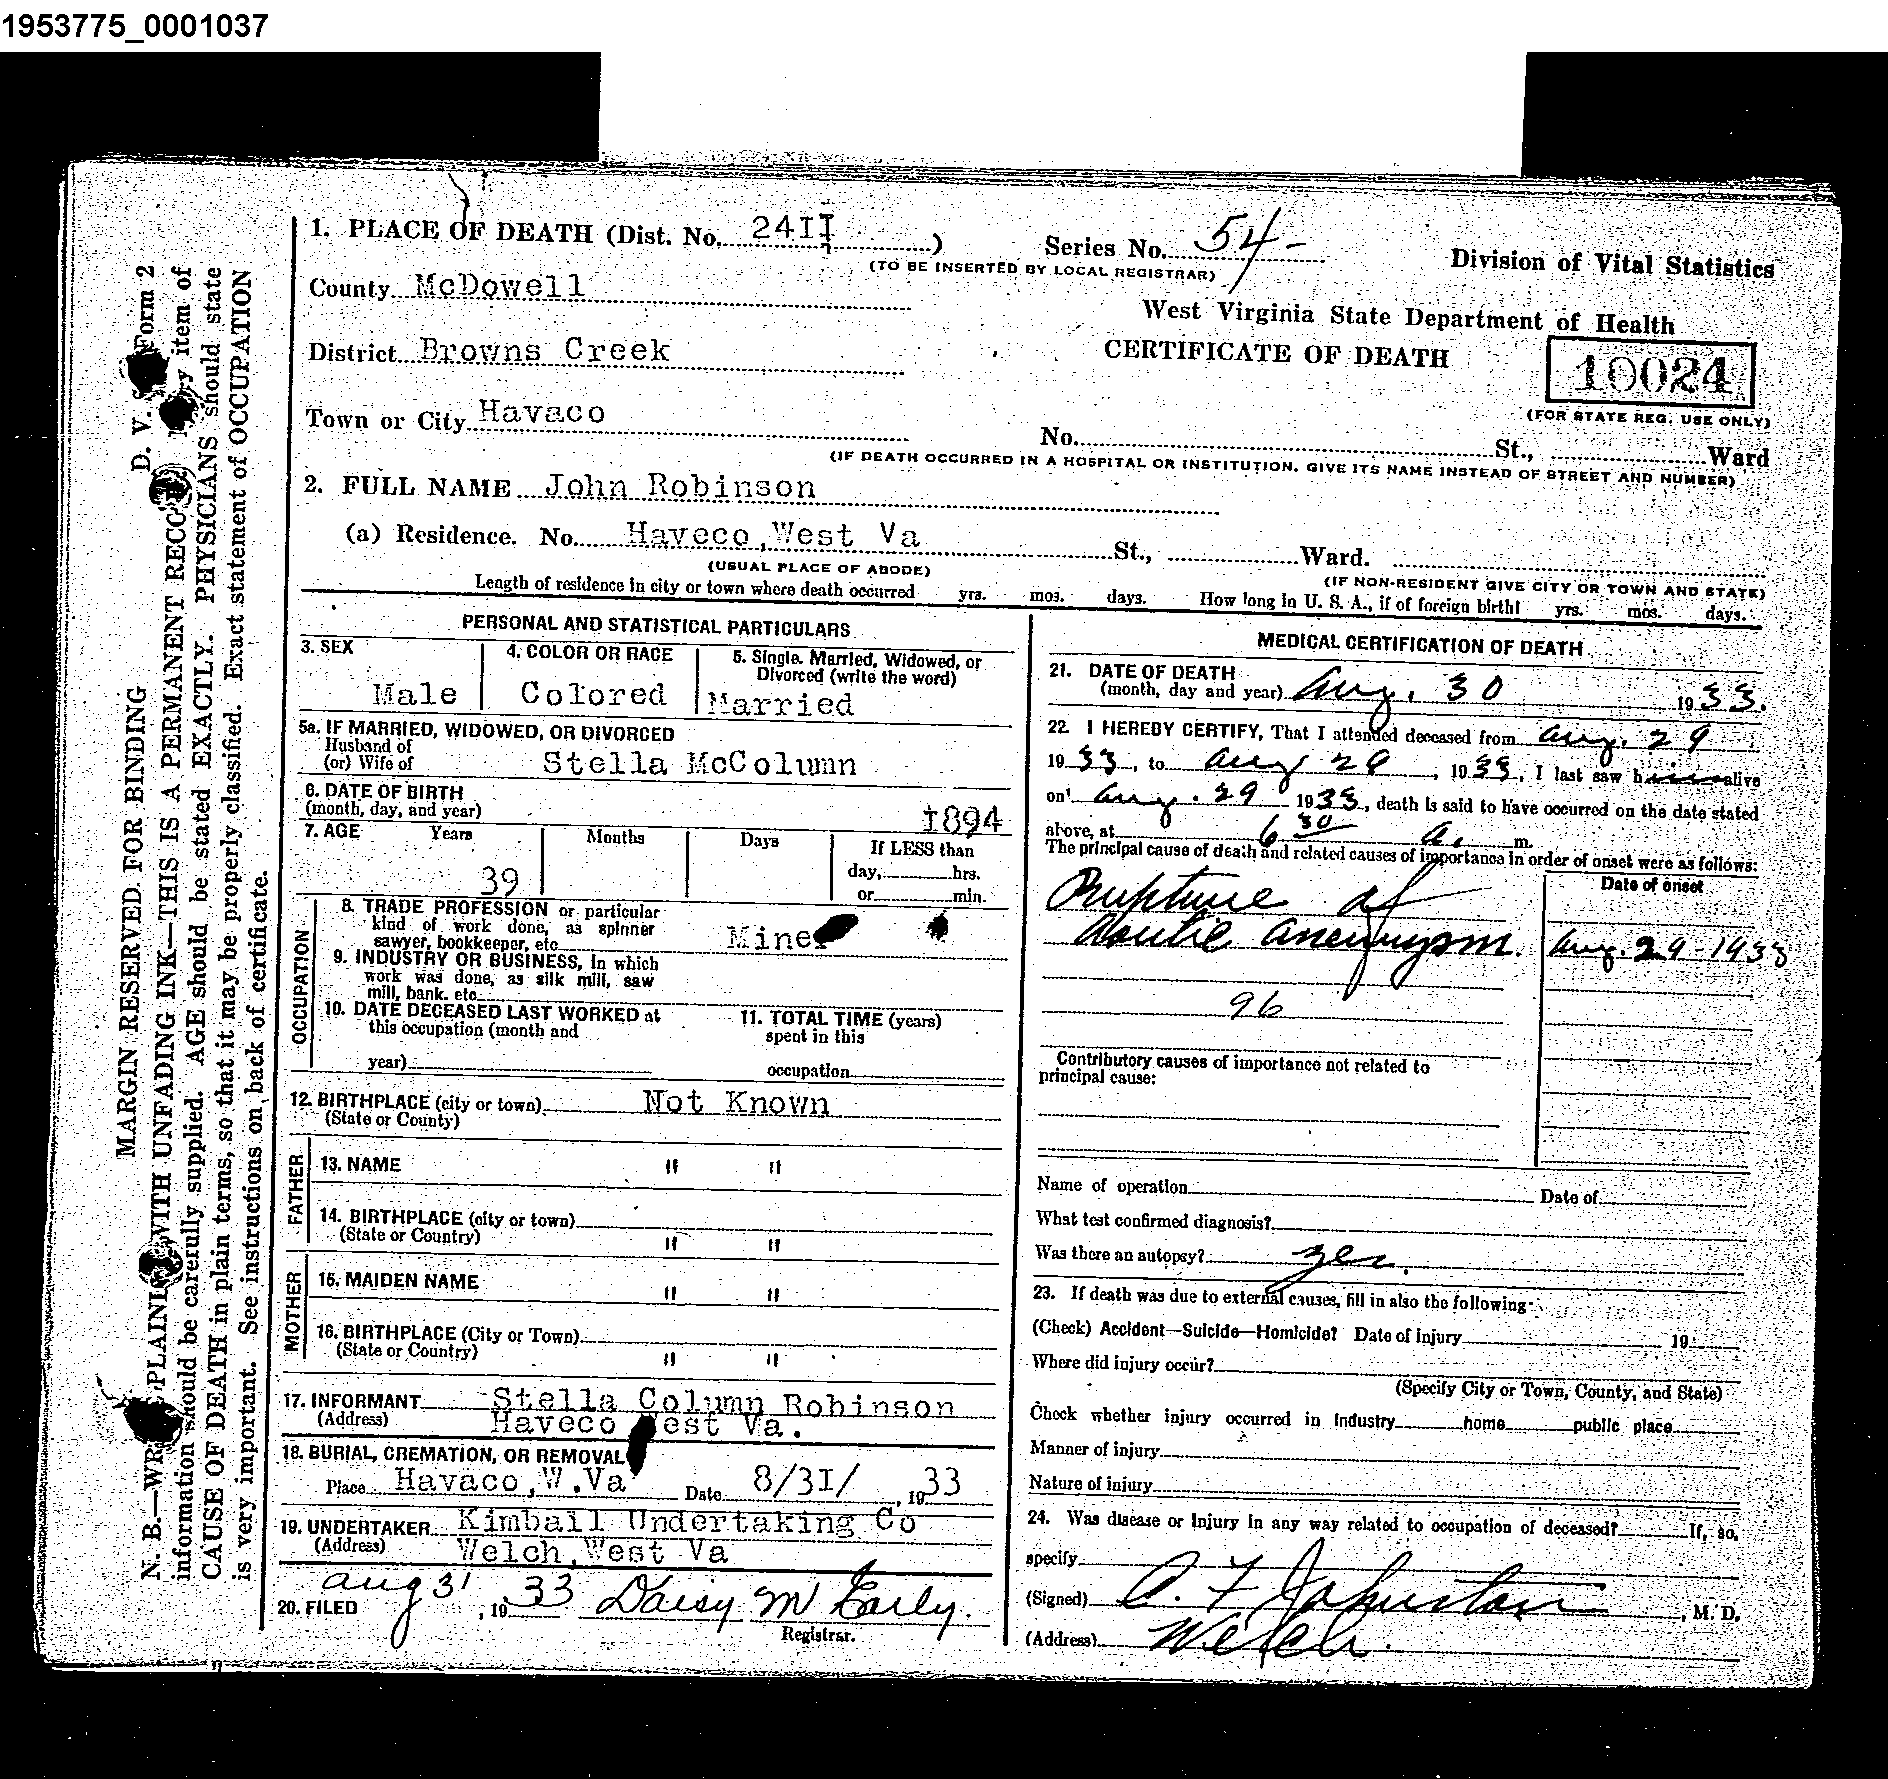 1953775_0001037
1. PLACE OF DEATH (Dist. No. 24II )
Series No. 54-
(TO BE INSERTED BY LOCAL REGISTRAR)
Division of Vital Statistics
County McDowell
West Virginia State Department of Health
District Browns Creek
CERTIFICATE OF DEATH
10024
(FOR STATE REG. USE ONLY)
Town or City Havaco
No. St., Ward
(IF DEATH OCCURRED IN A HOSPITAL OR INSTITUTION, GIVE ITS NAME INSTEAD OF STREET AND NUMBER)
2. FULL NAME John Robinson
(a) Residence. No. Haveco, West Va St., Ward.
(USUAL PLACE OF ABODE)
(IF NON-RESIDENT GIVE CITY OR TOWN AND STATE)
Length of residence in city or town where death occurred yrs. mos. days. How long in U. S. A., if of foreign birth? yrs. mos. days.
PERSONAL AND STATISTICAL PARTICULARS
3. SEX
Male
4. COLOR OR RACE
Colored
5. Single, Married, Widowed, or
Divorced (write the word)
Married
5a. IF MARRIED, WIDOWED, OR DIVORCED
Husband of
(or) Wife of Stella McColumn
6. DATE OF BIRTH
(month, day, and year) 1894
7. AGE Years Months Days If LESS than
39 day, hrs.
or min.
OCCUPATION
8. TRADE PROFESSION or particular
kind of work done, as spinner
sawyer, bookkeeper, etc. Miner
9. INDUSTRY OR BUSINESS, in which
work was done, as silk mill, saw
mill, bank, etc.
10. DATE DECEASED LAST WORKED at
this occupation (month and
year)
11. TOTAL TIME (years)
spent in this
occupation
12. BIRTHPLACE (city or town) Not Known
(State or County)
FATHER
13. NAME " "
14. BIRTHPLACE (city or town)
(State or Country) " "
MOTHER
15. MAIDEN NAME " "
16. BIRTHPLACE (City or Town)
(State or Country) " "
17. INFORMANT Stella Column Robinson
(Address) Haveco West Va.
18. BURIAL, CREMATION, OR REMOVAL
Place Havaco, W.Va Date 8/3I/ , 1933
19. UNDERTAKER Kimball Undertaking Co
(Address) Welch, West Va
20. FILED Aug 31 , 1933 Daisy M Early.
Registrar.
MEDICAL CERTIFICATION OF DEATH
21. DATE OF DEATH
(month, day and year) Aug. 30 1933.
22. I HEREBY CERTIFY, That I attended deceased from Aug. 29
1933, to Aug 29, 1933, I last saw him alive
on Aug. 29 1933, death is said to have occurred on the date stated
above, at 6 30 a. m.
The principal cause of death and related causes of importance in order of onset were as follows:
Date of onset
Rupture of
Aortic aneurysm. Aug. 29-1933
96
Contributory causes of importance not related to
principal cause:
Name of operation Date of
What test confirmed diagnosis?
Was there an autopsy? yes.
23. If death was due to external causes, fill in also the following:
(Check) Accident—Suicide—Homicide? Date of injury 19
Where did injury occur?
(Specify City or Town, County, and State)
Check whether injury occurred in industry home public place
Manner of injury
Nature of injury
24. Was disease or injury in any way related to occupation of deceased? If, so,
specify
(Signed) C. F. Johnston, M. D.
(Address) Welch.
D. V. Form 2
MARGIN RESERVED FOR BINDING
N. B.—WRITE PLAINLY WITH UNFADING INK—THIS IS A PERMANENT RECORD Every item of
information should be carefully supplied. AGE should be stated EXACTLY. PHYSICIANS should state
CAUSE OF DEATH in plain terms, so that it may be properly classified. Exact statement of OCCUPATION
is very important. See instructions on back of certificate.